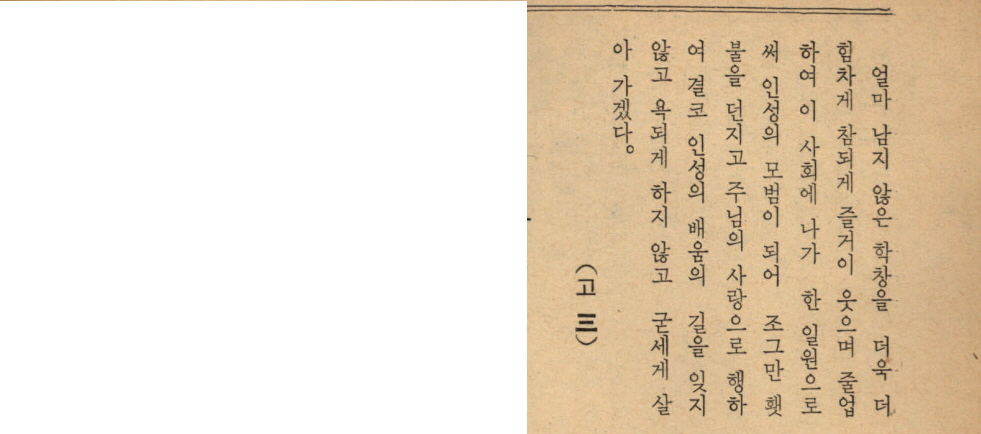 얼마 남지 않은 학창을 더욱 더
힘차게 참되게 즐거이 웃으며 줄업
하여 이 사회에 나가 한 일원으로
써 인성의 모범이 되어 조그만 횃
불을 던지고 주님의 사랑으로 행하
여 결코 인성의 배움의 길을 잊지
않고 욕되게 하지 않고 굳세게 살
아 가겠다。
(고 三)